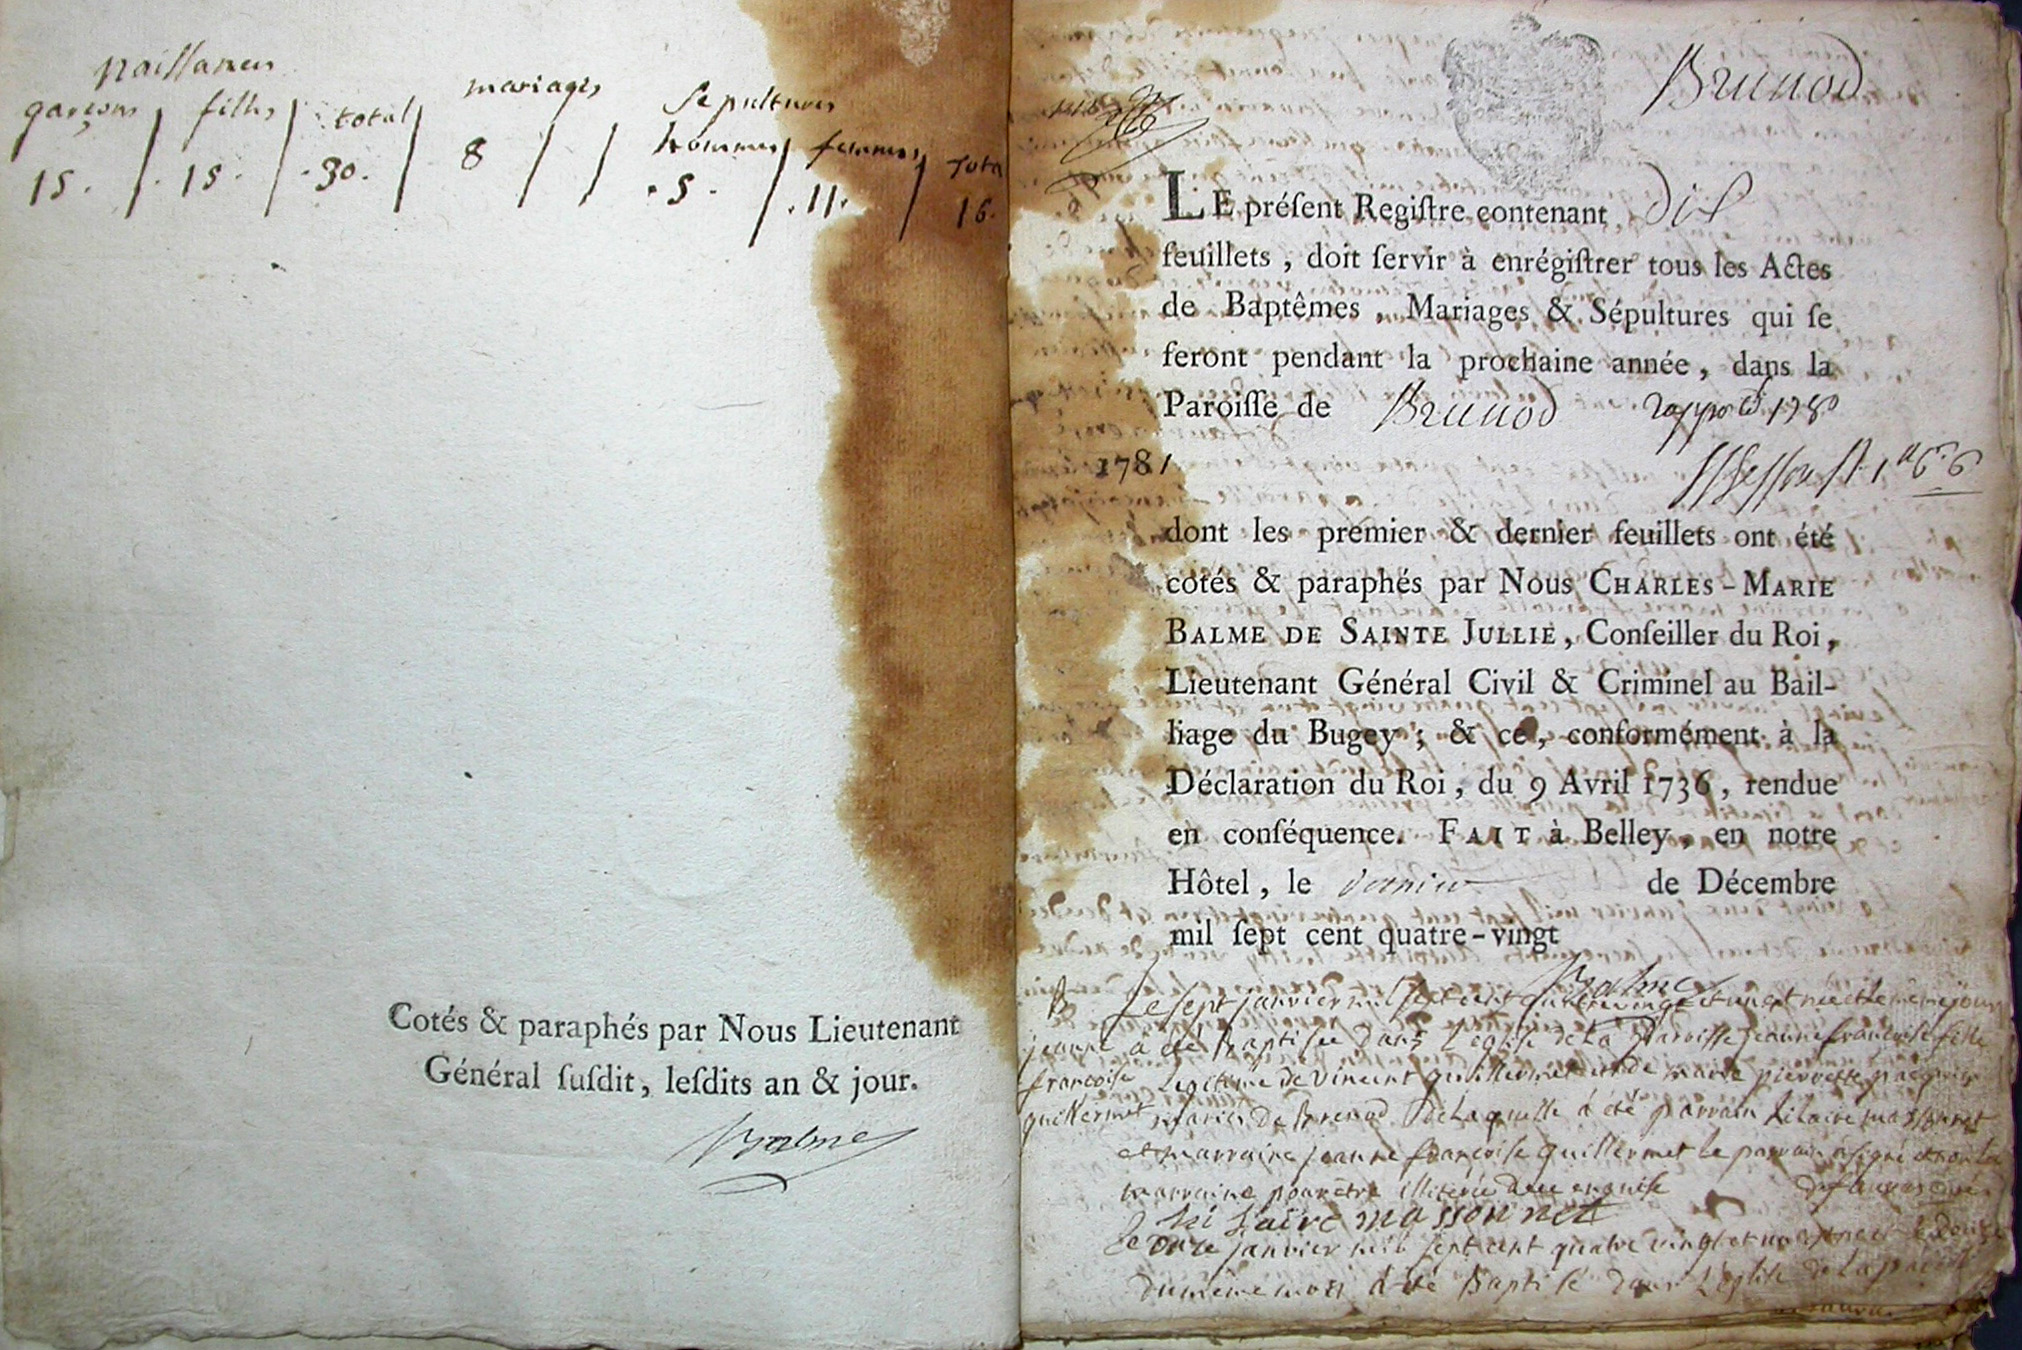 naissances
garçons / filles / total / mariages / Sepultures
hommes / femmes / total
15. / . 15 . / . 30 . / 8 / / . 5 . / . 11 . / 16.
Cotés & paraphés par Nous Lieutenant
Général ſuſdit, leſdits an & jour.
Balme
Brunod
LE préſent Regiſtre contenant dix
feuillets, doit ſervir à enrégiſtrer tous les Actes
de Baptêmes, Mariages & Sépultures qui ſe
feront pendant la prochaine année, dans la
Paroiſſe de Brunod
1781
dont les premier & dernier feuillets ont été
cotés & paraphés par Nous CHARLES-MARIE
BALME DE SAINTE JULLIE, Conſeiller du Roi,
Lieutenant Général Civil & Criminel au Bail-
liage du Bugey ; & ce, conformément à la
Déclaration du Roi, du 9 Avril 1736, rendue
en conſéquence. FAIT à Belley, en notre
Hôtel, le dernier de Décembre
mil ſept cent quatre-vingt
Balme
B Le sept janvier mil sept cent quatre vingt et un est née et le même jour
jeanne a été Baptisée dans l'eglise de La paroisse jeanne françoise fille
françoise Legitime de vincent guillermet et de marie pierrette
guillermet mariés de Brenod De Laquelle a été parrain hilaire massonnet
et marraine jeanne françoise guillermet le parrain a signé et non la
marraine pour être illiterée de ce enquise
hi laire massonnet
Le onze janvier mil sept cent quatre vingt et un est né et le douze
du même mois a été Baptisé dans L'eglise de La paroisse